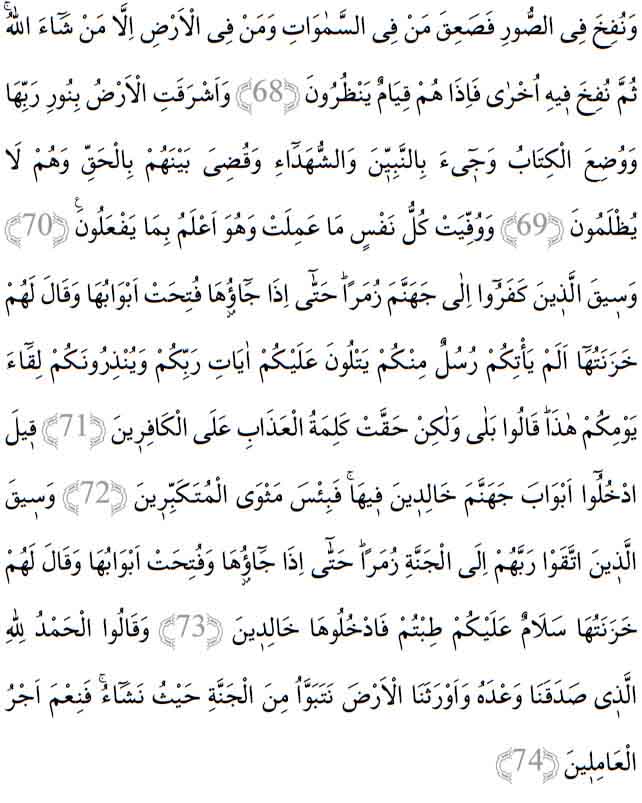 وَنُفِخَ فِى الصُّورِ فَصَعِقَ مَنْ فِى السَّمٰوَاتِ وَمَنْ فِى الْاَرْضِ اِلَّا مَنْ شَٓاءَ اللّٰهُۜ
ثُمَّ نُفِخَ ف۪يهِ اُخْرٰى فَاِذَا هُمْ قِيَامٌ يَنْظُرُونَ ﴿68﴾ وَاَشْرَقَتِ الْاَرْضُ بِنُورِ رَبِّهَا
وَوُضِعَ الْكِتَابُ وَج۪ٓىءَ بِالنَّبِيّ۪نَ وَالشُّهَدَٓاءِ وَقُضِىَ بَيْنَهُمْ بِالْحَقِّ وَهُمْ لَا
يُظْلَمُونَ ﴿69﴾ وَوُفِّيَتْ كُلُّ نَفْسٍ مَا عَمِلَتْ وَهُوَ اَعْلَمُ بِمَا يَفْعَلُونَ۟ ﴿70﴾
وَس۪يقَ الَّذ۪ينَ كَفَرُٓوا اِلٰى جَهَنَّمَ زُمَراًۜ حَتّٰٓى اِذَا جَٓاؤُ۫هَا فُتِحَتْ اَبْوَابُهَا وَقَالَ لَهُمْ
خَزَنَتُهَٓا اَلَمْ يَأْتِكُمْ رُسُلٌ مِنْكُمْ يَتْلُونَ عَلَيْكُمْ اٰيَاتِ رَبِّكُمْ وَيُنْذِرُونَكُمْ لِقَٓاءَ
يَوْمِكُمْ هٰذَاۜ قَالُوا بَلٰى وَلٰكِنْ حَقَّتْ كَلِمَةُ الْعَذَابِ عَلَى الْكَافِر۪ينَ ﴿71﴾ ق۪يلَ
ادْخُلُٓوا اَبْوَابَ جَهَنَّمَ خَالِد۪ينَ ف۪يهَاۚ فَبِئْسَ مَثْوَى الْمُتَكَبِّر۪ينَ ﴿72﴾ وَس۪يقَ
الَّذ۪ينَ اتَّقَوْا رَبَّهُمْ اِلَى الْجَنَّةِ زُمَراًۜ حَتّٰٓى اِذَا جَٓاؤُ۫هَا وَفُتِحَتْ اَبْوَابُهَا وَقَالَ لَهُمْ
خَزَنَتُهَا سَلَامٌ عَلَيْكُمْ طِبْتُمْ فَادْخُلُوهَا خَالِد۪ينَ ﴿73﴾ وَقَالُوا الْحَمْدُ لِلّٰهِ
الَّذ۪ى صَدَقَنَا وَعْدَهُ وَاَوْرَثَنَا الْاَرْضَ نَتَبَوَّاُ مِنَ الْجَنَّةِ حَيْثُ نَشَٓاءُۚ فَنِعْمَ اَجْرُ
الْعَامِل۪ينَ ﴿74﴾